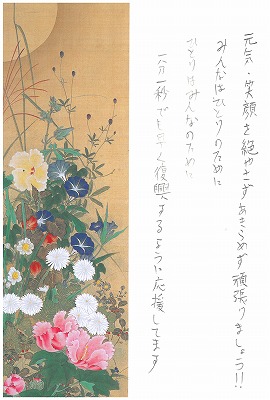 元気・笑顔を絶やさずあきらめず頑張りましょう!!
みんなはひとりのために
ひとりはみんなのために
一分一秒でも早く復興するように応援してます